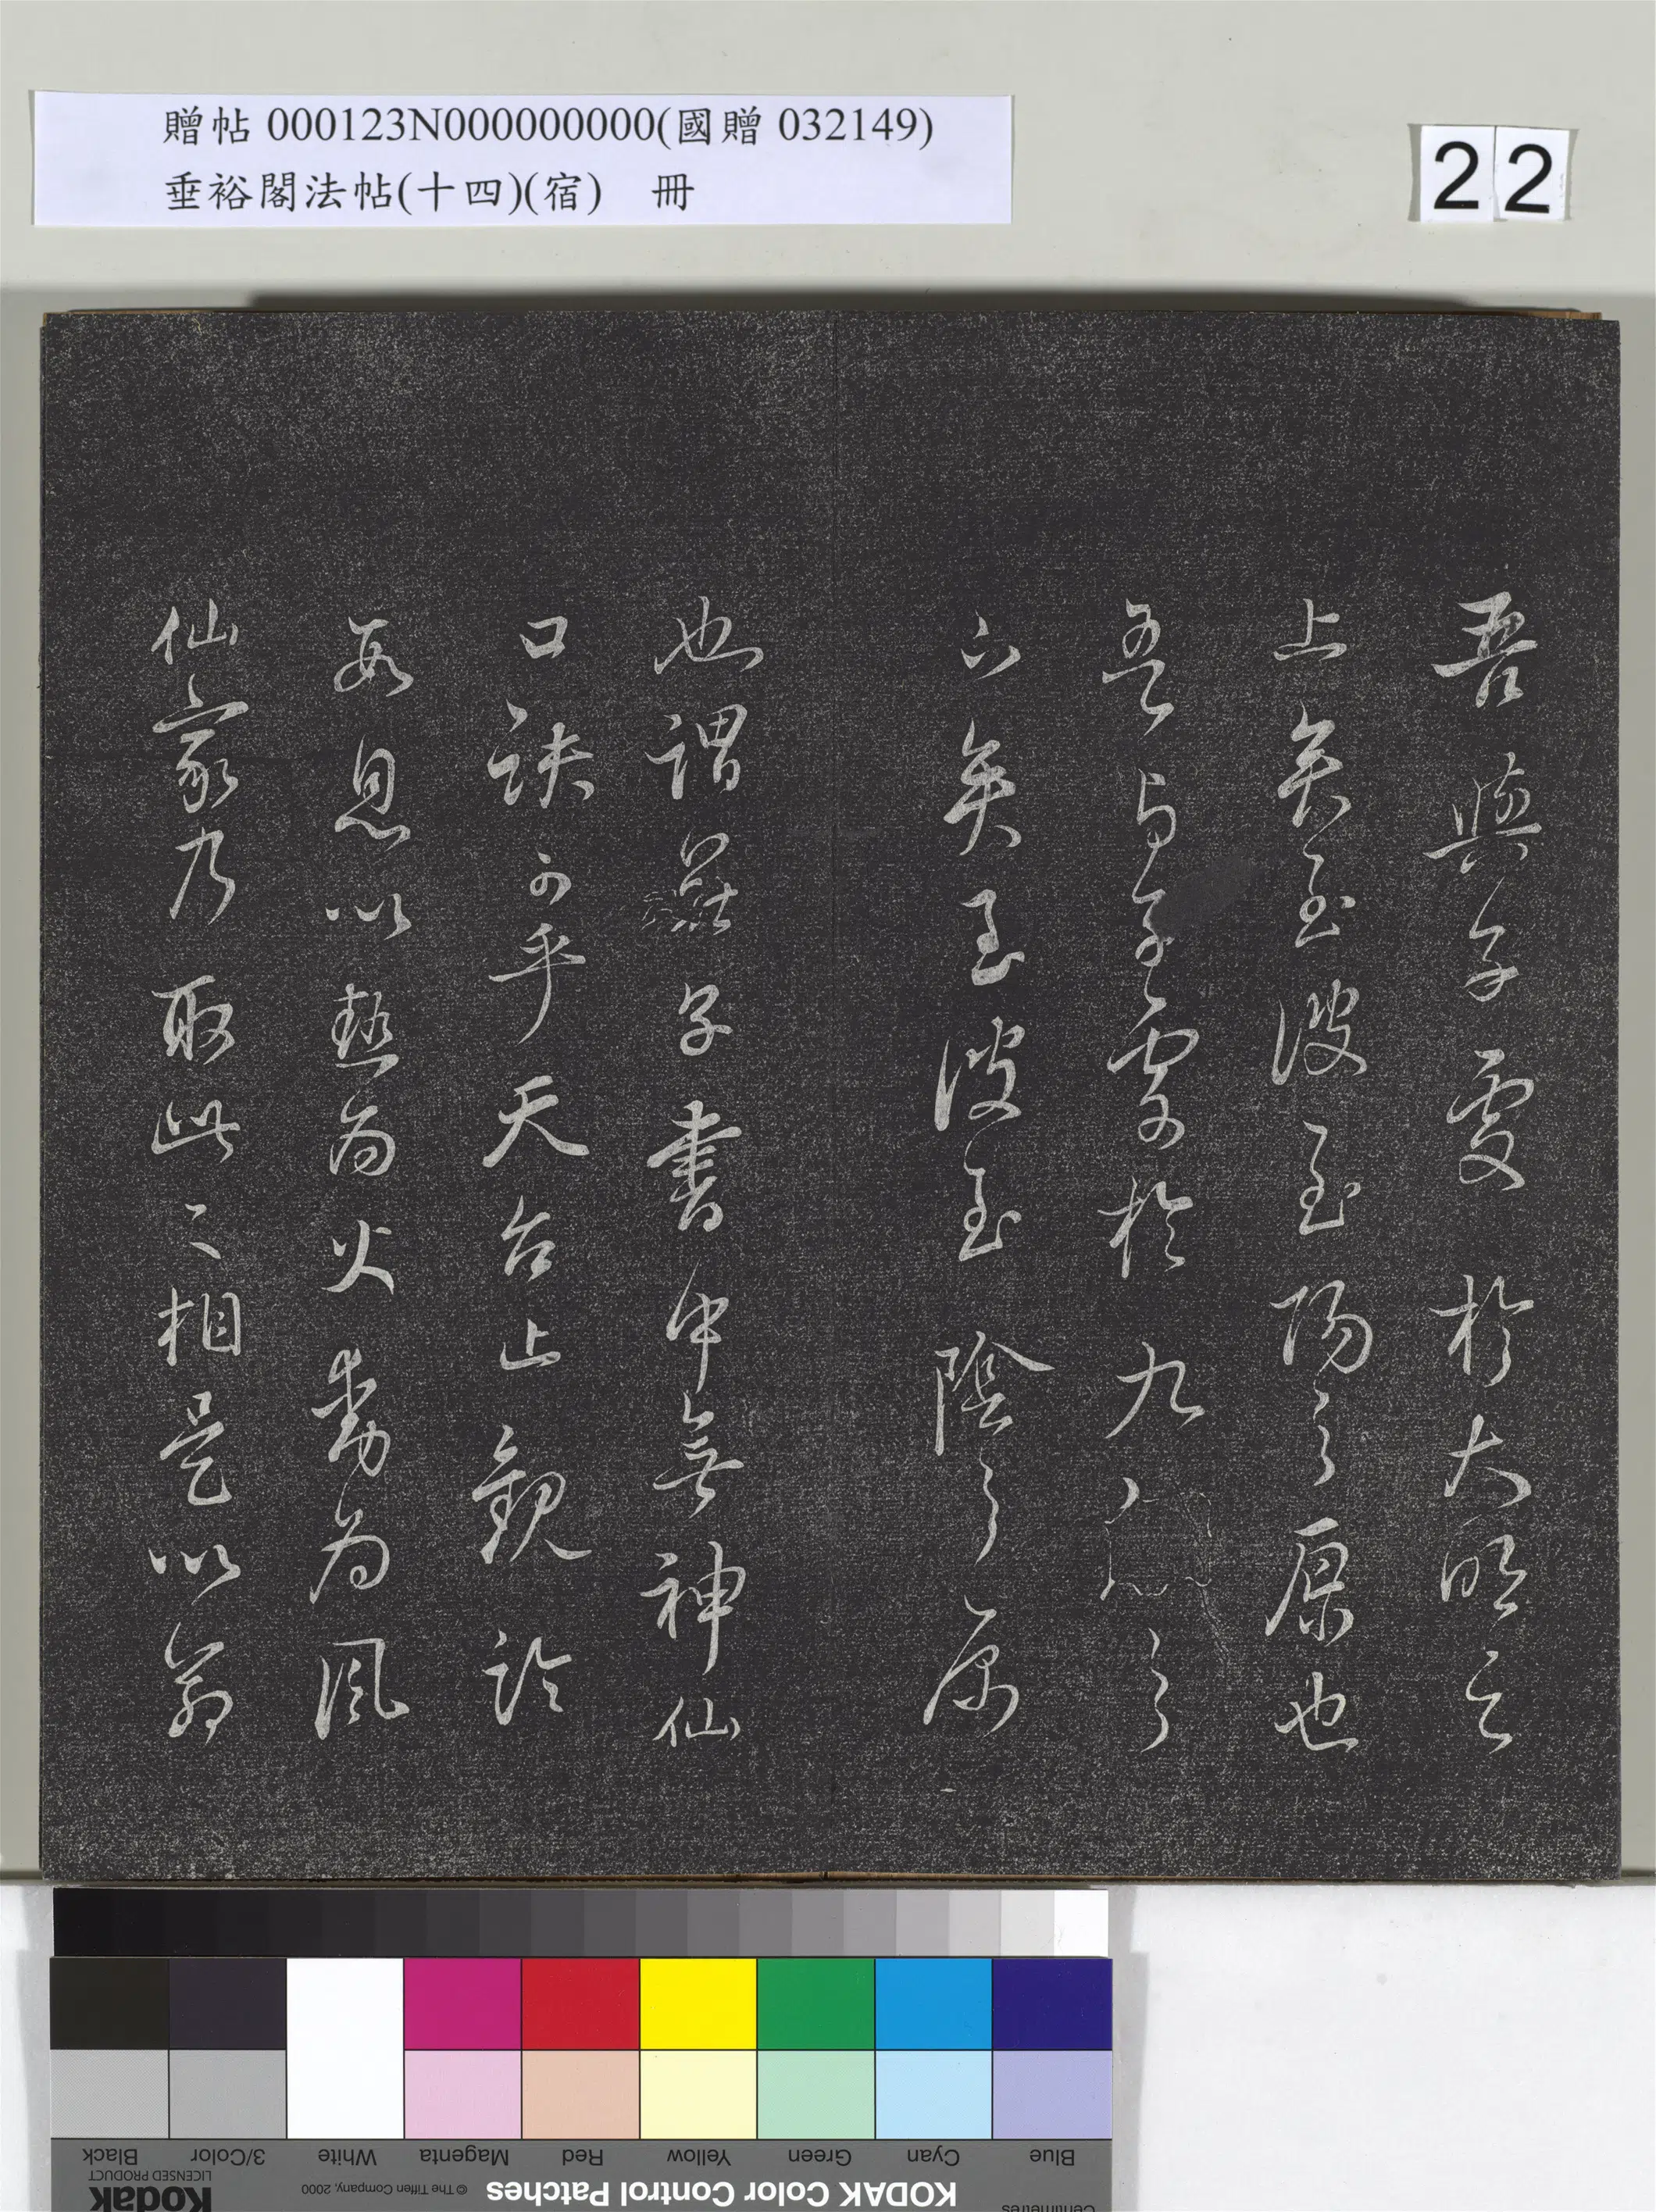 贈帖 000123N000000000(國贈 032149)
垂裕閣法帖(十四)(宿) 冊
22
吾與子處於大明之
上矣至彼至陽之原也
吾與子處於九之
下矣至彼至陰之原
也謂莊子書中無神仙
口訣可乎天台止觀論
息以熱為火動為風
仙家乃取此二相是以
Blue
Cyan
Green
Yellow
Red
Magenta
White
3/Color
Black
KODAK Color Control Patches
© The Tiffen Company, 2000
Kodak
LICENSED PRODUCT
Centimetres